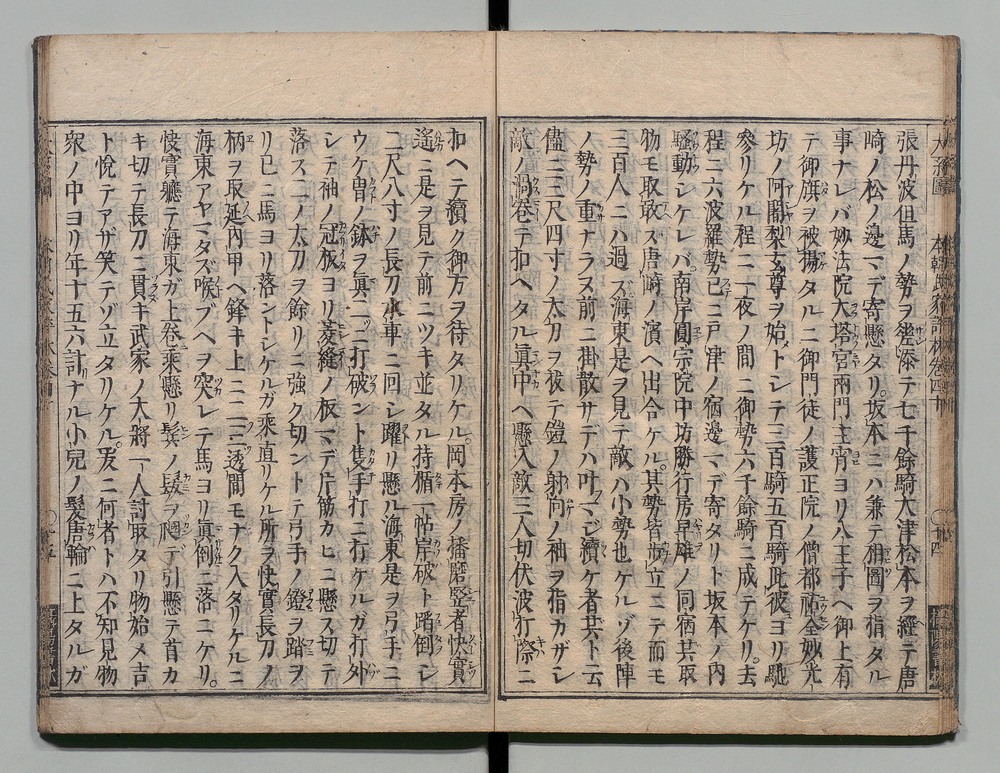 張丹波但馬ノ勢ヲ差添テ七千餘騎大津松本ヲ經テ唐
崎ノ松ノ邊マデ寄懸タリ。坂本ニハ兼テ相圖ヲ指タル
事ナレバ妙法院大塔宮兩門主宵ヨリ八王子ヘ御上有
テ御旗ヲ被揚タルニ御門徒ノ護正院ノ僧都祐全妙光
坊ノ阿闍梨玄尊ヲ始トシテ三百騎五百騎此彼ヨリ馳
參リケル程ニ一夜ノ間ニ御勢六千餘騎ニ成テケリ。去
程ニ六波羅勢已ニ戸津ノ宿邊マデ寄タリト坂本ノ内
騷動シケレバ南岸圓宗院中坊勝行房早雄ノ同宿共取
物モ取敢ズ唐崎ノ濱ヘ出合ケル。其勢皆歩立ニテ而モ
三百人ニハ過ズ海東是ヲ見テ敵ハ小勢也ケルゾ後陣
ノ勢ノ重ナラヌ前ニ掛散サデハ叶マジ續ケ者共ト云
儘ニ三尺四寸ノ太刀ヲ拔テ鎧ノ射向ノ袖ヲ指カザシ
敵ノ渦卷テ扣ヘタル眞中ヘ懸入敵三人切伏波打際ニ
扣ヘテ續ク御方ヲ待タリケル。岡本房ノ播磨豎者快實
遙ニ是ヲ見テ前ニツキ並タル持楯一帖岸破ト蹈倒シ
二尺八寸ノ長刀水車ニ回シ躍リ懸ル海東是ヲ弓手ニ
ウケ冑ノ鉢ヲ眞二ツニ打破ント隻手打ニ打ケルガ打外
シテ袖ノ冠板ヨリ菱縫ノ板マデ片筋カヒニ懸ズ切テ
落ス二ノ太刀ヲ餘リニ強ク切ントテ弓手ノ鐙ヲ踏ヲ
リ已ニ馬ヨリ落ントシケルガ乘直リケル所ヲ快實長刀ノ
柄ヲ取延内甲ヘ鋒キ上ニ二ツ三ツ透間モナク入タリケルニ
海東アヤマタズ喉ブヘヲ突レテ馬ヨリ眞倒ニ落ニケリ。
快實軈テ海東ガ上卷乘懸リ鬢ノ髮ヲ掴デ引懸テ首カ
キ切テ長刀ニ貫キ武家ノ太將一人討取タリ物始メ吉
ト悅テアザ笑テゾ立タリケル。爰ニ何者トハ不知見物
衆ノ中ヨリ年十五六計ナル小兒ノ髮唐輪ニ上タルガ